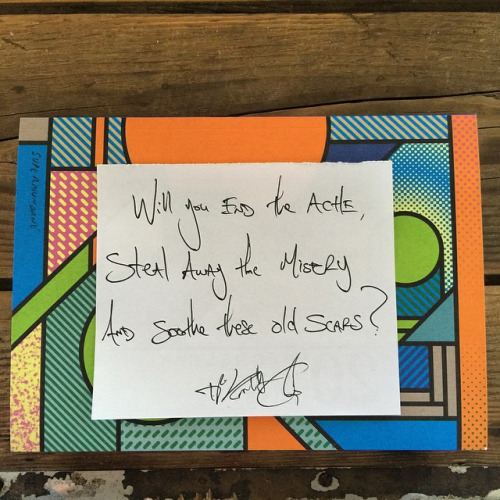 Will you END the ACHE,
Steal Away the MISERY
AND soothe these old SCARS?